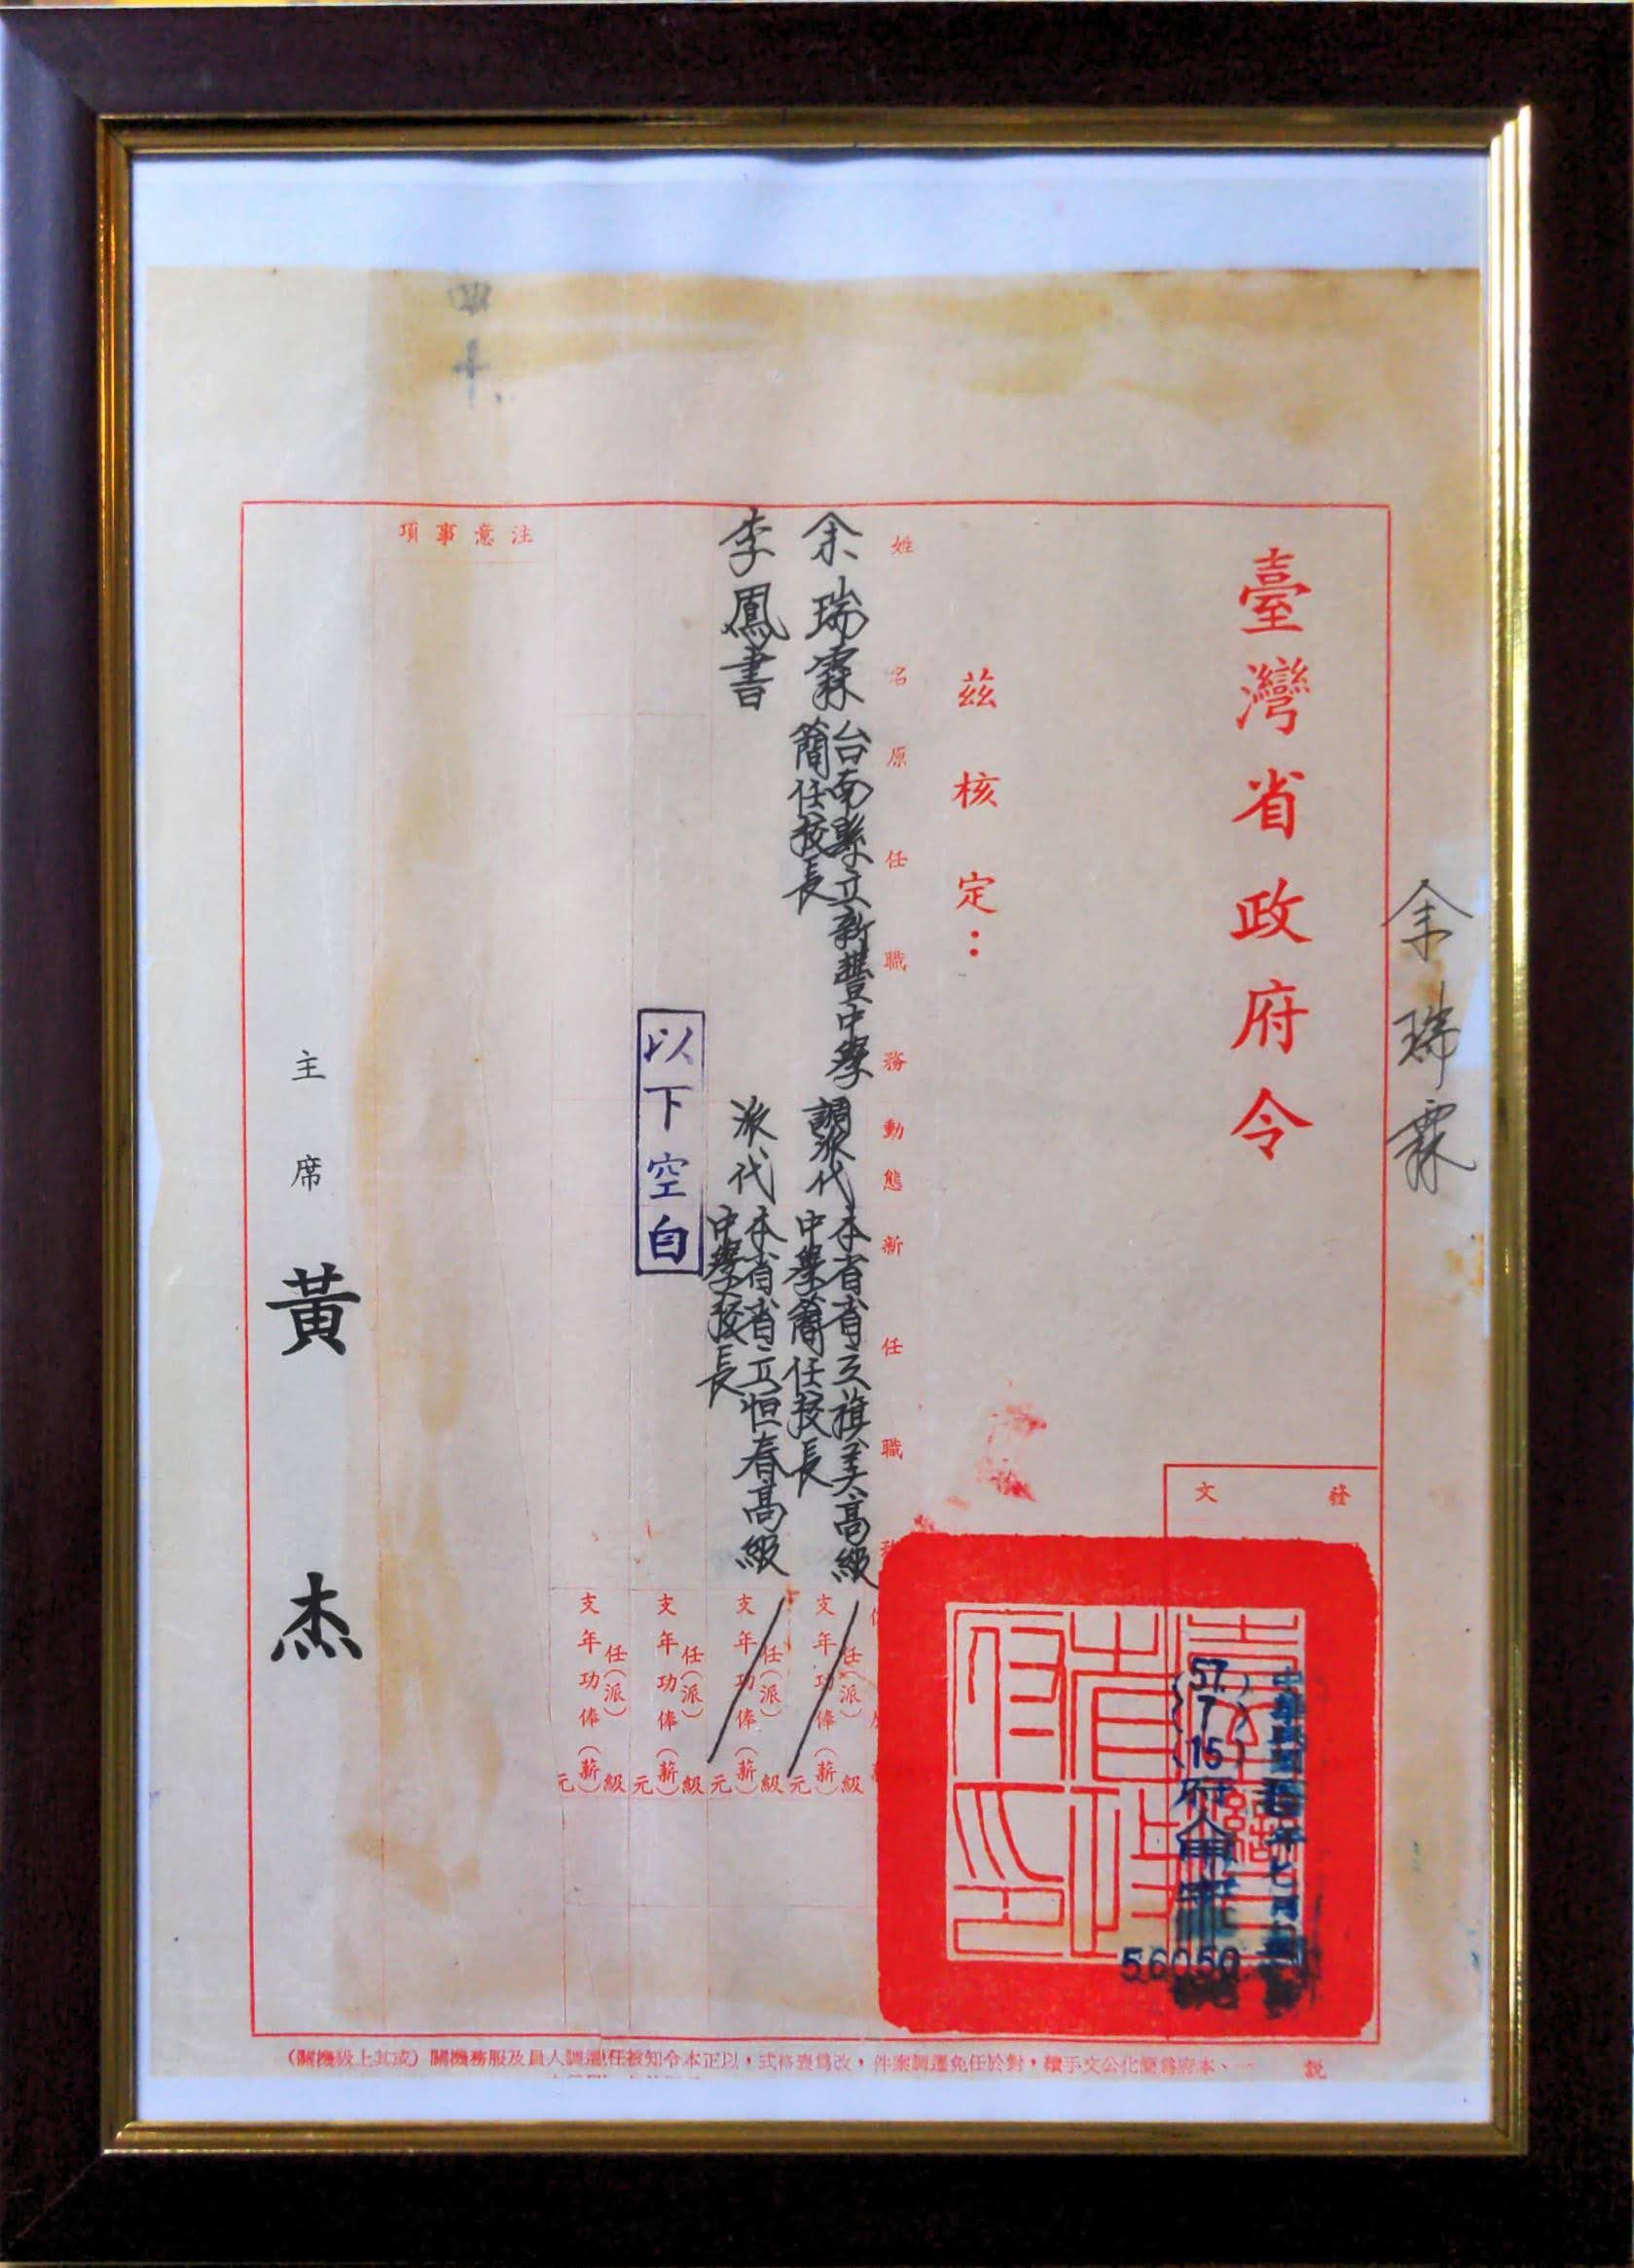 余瑞霖
臺灣省政府令
發文
中華民國
年七月
(57.7.15)府人
56050
茲核定：
姓名 原任職務 動態 新任職
余瑞霖 台南縣立新豐中學簡任校長 調派代 本省省立旗美高級中學簡任校長
任(派)級
支年功俸(薪)元
李鳳書 派代 本省省立恒春高級中學校長
任(派)級
支年功俸(薪)元
以下空白
任(派)級
支年功俸(薪)元
任(派)級
支年功俸(薪)元
注意事項
四十
主席 黃杰
說
一、本府為簡化公文手續，對於任免遷調案件，改為表格式，以正本令知被任遷調人員及服務機關(或其上級機關)